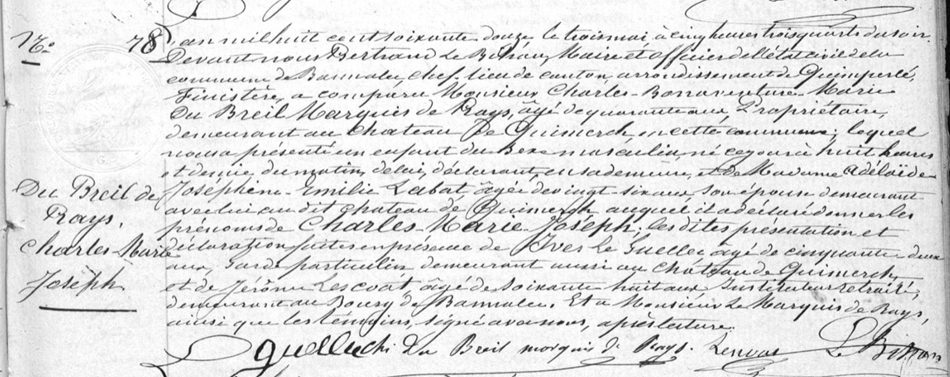 No. 78
Du Breil de
Rays,
Charles-Marie
Joseph
L'an mil huit cent soixante douze le trois mai à cinq heures trois quarts du soir.
Devant nous Bertrand Le Maire et officier de l'état civil de la
commune de Bannalec, chef-lieu de canton, arrondissement de Quimperlé,
Finistère, a comparu Monsieur Charles-Bonaventure Marie
Du Breil Marquis de Rays, âgé de quarante ans Propriétaire,
demeurant au Chateau de Quimerch en cette commune; lequel
nous a présenté un enfant du sexe masculin, né ce jour à huit heures
et demie du matin, de lui, déclarant, en sa demeure, et de Madame Adélaïde
Joséphine-Emilie Labat âgée de vingt six ans, son épouse demeurant
avec lui au dit chateau de Quimerch auquel il a déclaré donner les
prénoms de Charles-Marie Joseph; les dites présentation et
déclaration faites en présence de Yves Le Guellec âgé de cinquante deux
ans, Garde particulier demeurant aussi au château de Quimerch
et de Jérôme Lescoat âgé de soixante huit ans Instituteur retraité,
demeurant au Bourg de Bannalec. Et a Monsieur Le Marquis de Rays,
ainsi que les témoins, signé avec nous, après lecture.
Du Breil marquis de Rays.